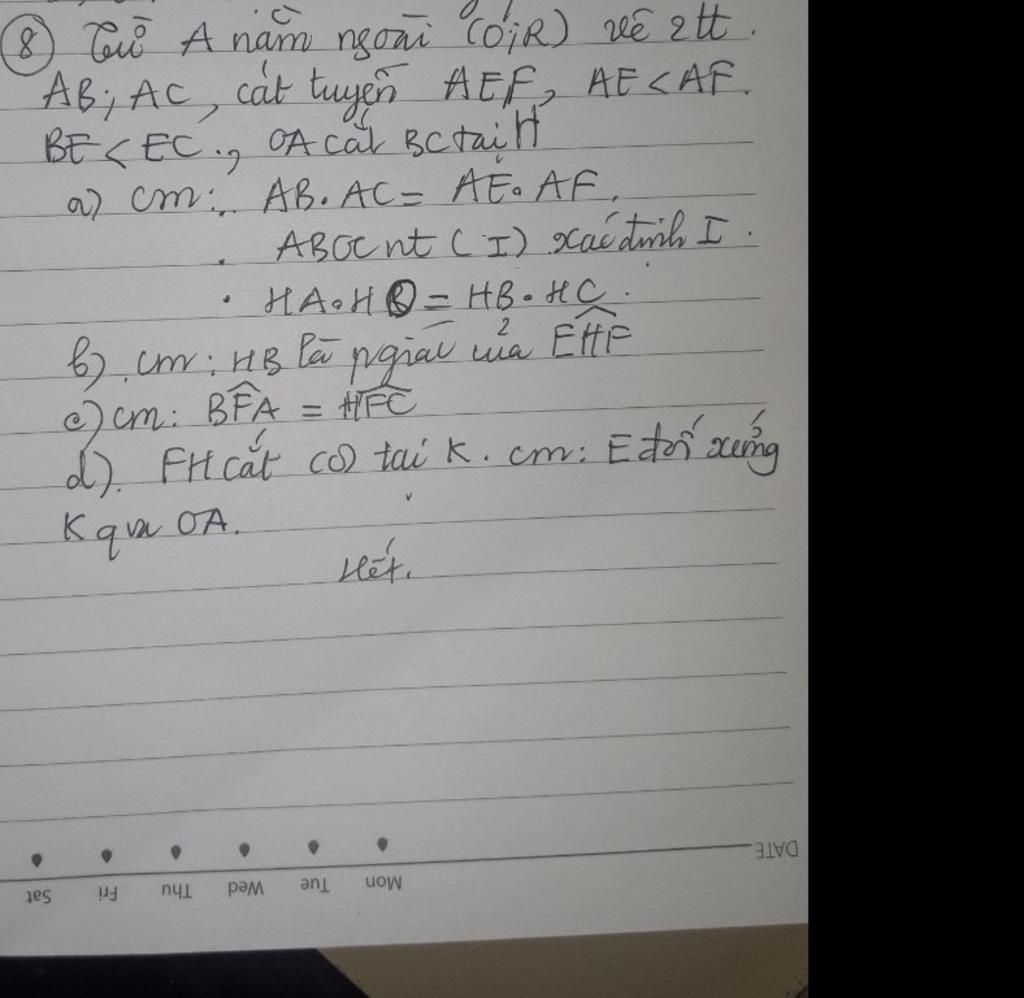 ⑧ Từ A nằm ngoài (O;R) vẽ 2tt.
AB; AC, cát tuyến AEF, AE < AF.
BE < EC., OA cắt BC tại H
a) cm: AB. AC = AE. AF.
. ABOC nt (I) xác định I.
. HA.HO = HB.HC.
b). cm: HB là pgiác của EHF
c) cm: BFA = HFC
d). FH cắt (O) tại K. cm: E đối xứng
K qua OA.
Hết.
DATE
Mon Tue Wed Thu Fri Sat